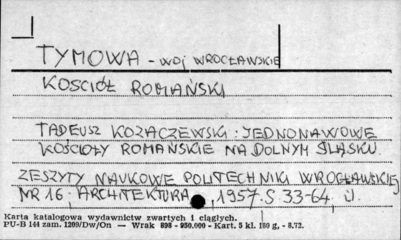 TYMOWA - WOJ WROCŁAWSKIE
KOSCIÓŁ ROMAŃSKI
TADEUSZ KOZACZEWSKI: JEDNONAWOWE
KOŚCIOŁY ROMAŃSKIE NA DOLNYM ŚLĄSKU
ZESZYTY NAUKOWE POLITECHNIKI WROCŁAWSKIEJ
NR 16, ARCHITEKTURA, 1957. S 33-64, il.
Karta katalogowa wydawnictw zwartych i ciągłych.
PU-B 144 zam. 1209/Dw/On — Wrak 898 - 950.000 - Kart. 5 kl. 180 g, - 8.72.